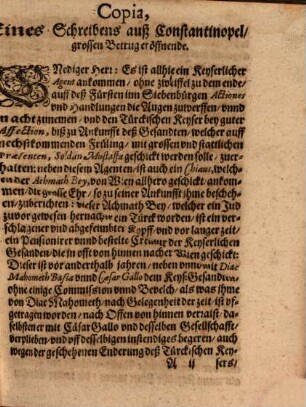 Copia,
Eines Schreibens auß Constantinopel/
grossen Betrug eröffnende.
GNediger Herr: Es ist allhie ein Keyserlicher
Agent ankommen/ ohne zweiffel zu dem ende/
auff deß Fürsten inn Siebenbürgen Actiones
vnd Handlungen die Augen zuwerffen/ vnnd
in acht zunemen/ vnd den Türckischen Keyser bey guter
Affection, biß zu Ankunfft deß Gesandten/ welcher auff
nechstkommenden Früling/ mit grossen vnd stattlichen
Præsenten, Soldan Mustaffa geschickt werden solle/ zuer-
halten: neben diesem Agenten/ ist auch ein Chiaus, welch-
en der Achmath Bey, von Wien allhero geschickt/ ankom-
men/ die grosse Ehr/ so zu seiner Ankunfft ihme besche-
hen/ zuberichten: dieser Achmath Bey, welcher ein Jud
zuvor gewesen hernacher ein Türck worden/ ist ein ver-
schlagener vnd abgefeimbter Kopff/ vnd vor langer zeit/
ein Pensionirer vnnd bestelte Creatur der Keyserlichen
Gesanden/ die in offt von hinnen nacher Wien geschickt:
Dieser ist vor anderthalb jahren/ neben vnnd mit Diac
Mahometh Bassa vnnd Cæsar Gallo dem Keys: Gesandten/
ohne einige Commission vnnd Bevelch/ als was ihme
von Diac Mahometh/ nach Gelegenheit der zeit/ ist vf-
getragen worden/ nach Offen von hinnen verraist/ da-
selbsten er mit Cásar Gallo vnd desselben Gesellschafft/
verplieben/ vnd vff desselbigen instendiges begeren/ auch
wegen der geschehenen Enderung deß Türckischen Key-
A ij sers/